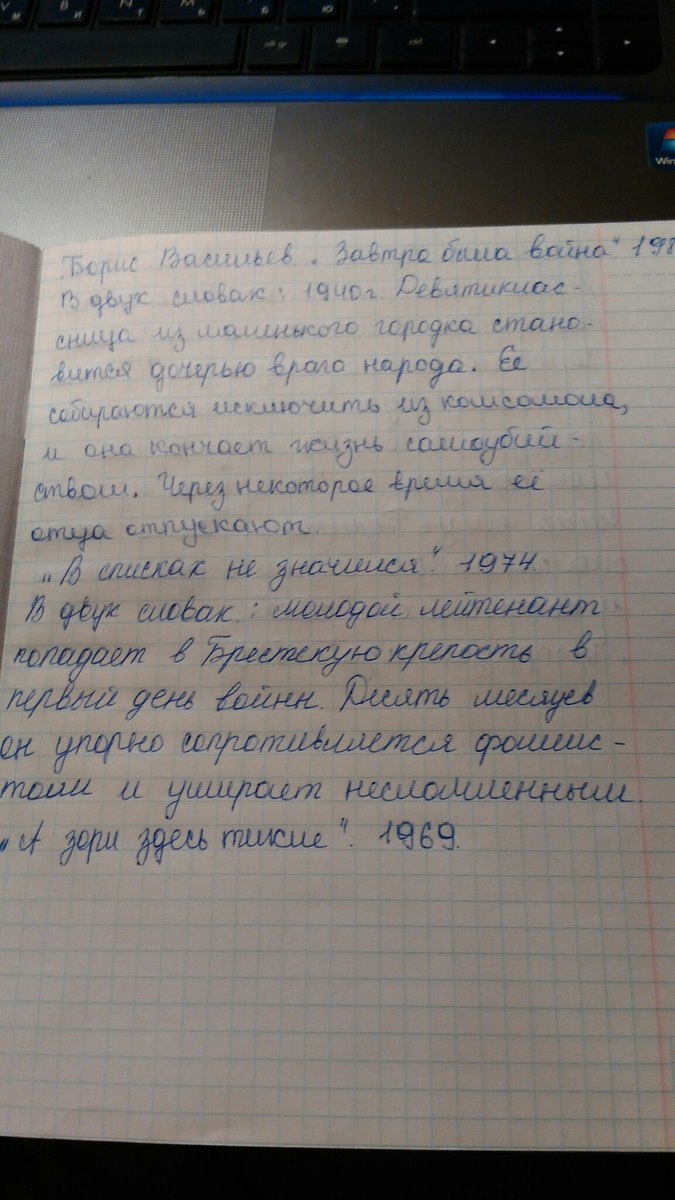 Борис Васильев „Завтра была война" 198
В двух словах: 1940г Девятиклас-
сница из маленького городка стано-
вится дочерью врага народа. Её
собираются исключить из комсомола,
и она кончает жизнь самоубий-
ством. Через некоторое время её
отца отпускают.
„В списках не значился". 1974.
В двух словах: молодой лейтенант
попадает в Брестскую крепость в
первый день войны. Десять месяцев
он упорно сопротивляется фашис-
там и умирает несломленным.
„А зори здесь тихие". 1969.